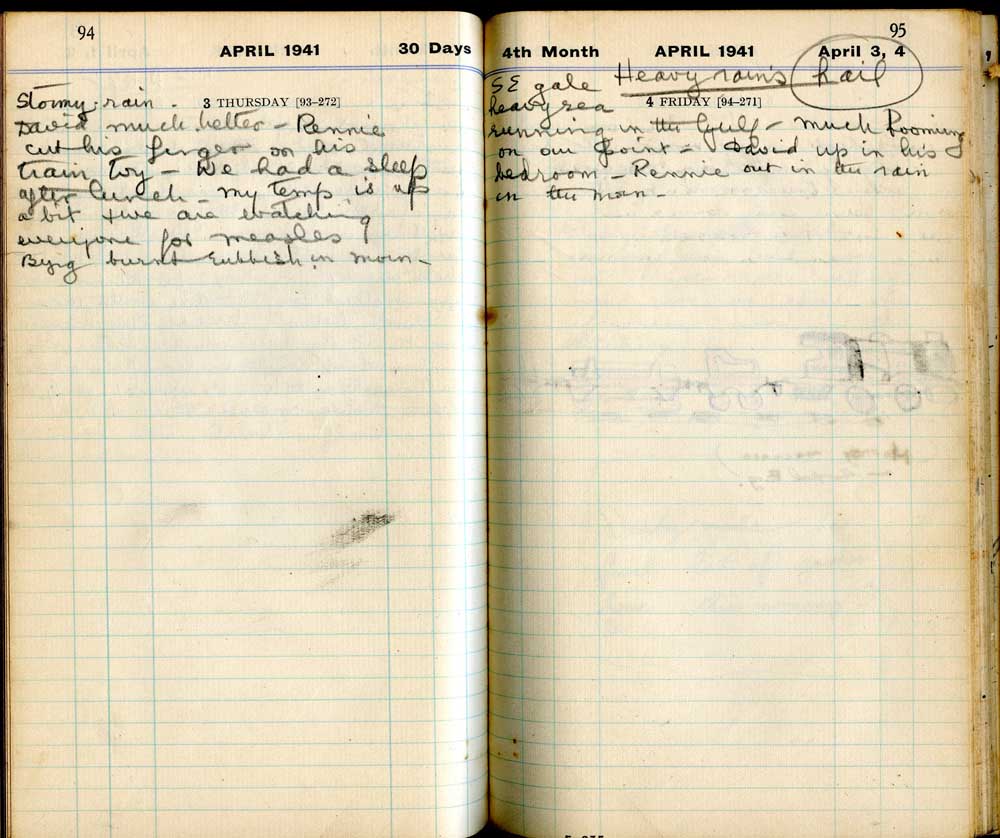 94
APRIL 1941 30 Days
3 THURSDAY [93-272]
Stormy; rain -
David much better - Rennie
cut his finger on his
train toy - We had a sleep
after lunch - my temp is up
a bit & we are watching
everyone for measles!
Byng burnt rubbish in morn -
95
4th Month APRIL 1941 April 3, 4
4 FRIDAY [94-271]
SE gale Heavy rains hail
heavy sea
running in the Gulf - much booming
on our Point - David up in his
bedroom - Rennie out in the rain
in the morn -